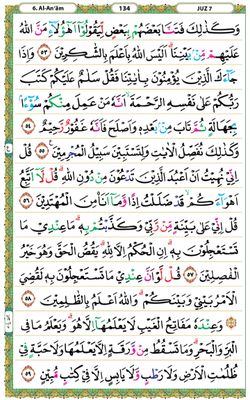 6. Al-An'ām 134 JUZ 7
وَكَذَٰلِكَ فَتَنَّا بَعْضَهُم بِبَعْضٍ لِّيَقُولُوٓا۟ أَهَٰٓؤُلَآءِ مَنَّ ٱللَّهُ
عَلَيْهِم مِّنۢ بَيْنِنَآ أَلَيْسَ ٱللَّهُ بِأَعْلَمَ بِٱلشَّٰكِرِينَ ٥٣ وَإِذَا
جَآءَكَ ٱلَّذِينَ يُؤْمِنُونَ بِـَٔايَٰتِنَا فَقُلْ سَلَٰمٌ عَلَيْكُمْ كَتَبَ
رَبُّكُمْ عَلَىٰ نَفْسِهِ ٱلرَّحْمَةَ أَنَّهُۥ مَنْ عَمِلَ مِنكُمْ سُوٓءًۢا
بِجَهَٰلَةٍ ثُمَّ تَابَ مِنۢ بَعْدِهِۦ وَأَصْلَحَ فَأَنَّهُۥ غَفُورٌ رَّحِيمٌ
٥٤ وَكَذَٰلِكَ نُفَصِّلُ ٱلْـَٔايَٰتِ وَلِتَسْتَبِينَ سَبِيلُ ٱلْمُجْرِمِينَ ٥٥ قُلْ
إِنِّى نُهِيتُ أَنْ أَعْبُدَ ٱلَّذِينَ تَدْعُونَ مِن دُونِ ٱللَّهِ قُل لَّآ أَتَّبِعُ
أَهْوَآءَكُمْ قَدْ ضَلَلْتُ إِذًا وَمَآ أَنَا۠ مِنَ ٱلْمُهْتَدِينَ ٥٦
قُلْ إِنِّى عَلَىٰ بَيِّنَةٍ مِّن رَّبِّى وَكَذَّبْتُم بِهِۦ مَا عِندِى مَا
تَسْتَعْجِلُونَ بِهِۦٓ إِنِ ٱلْحُكْمُ إِلَّا لِلَّهِ يَقُصُّ ٱلْحَقَّ وَهُوَ خَيْرُ
ٱلْفَٰصِلِينَ ٥٧ قُل لَّوْ أَنَّ عِندِى مَا تَسْتَعْجِلُونَ بِهِۦ لَقُضِىَ
ٱلْأَمْرُ بَيْنِى وَبَيْنَكُمْ وَٱللَّهُ أَعْلَمُ بِٱلظَّٰلِمِينَ
٥٨ وَعِندَهُۥ مَفَاتِحُ ٱلْغَيْبِ لَا يَعْلَمُهَآ إِلَّا هُوَ وَيَعْلَمُ مَا فِى
ٱلْبَرِّ وَٱلْبَحْرِ وَمَا تَسْقُطُ مِن وَرَقَةٍ إِلَّا يَعْلَمُهَا وَلَا حَبَّةٍ فِى
ظُلُمَٰتِ ٱلْأَرْضِ وَلَا رَطْبٍ وَلَا يَابِسٍ إِلَّا فِى كِتَٰبٍ مُّبِينٍ ٥٩